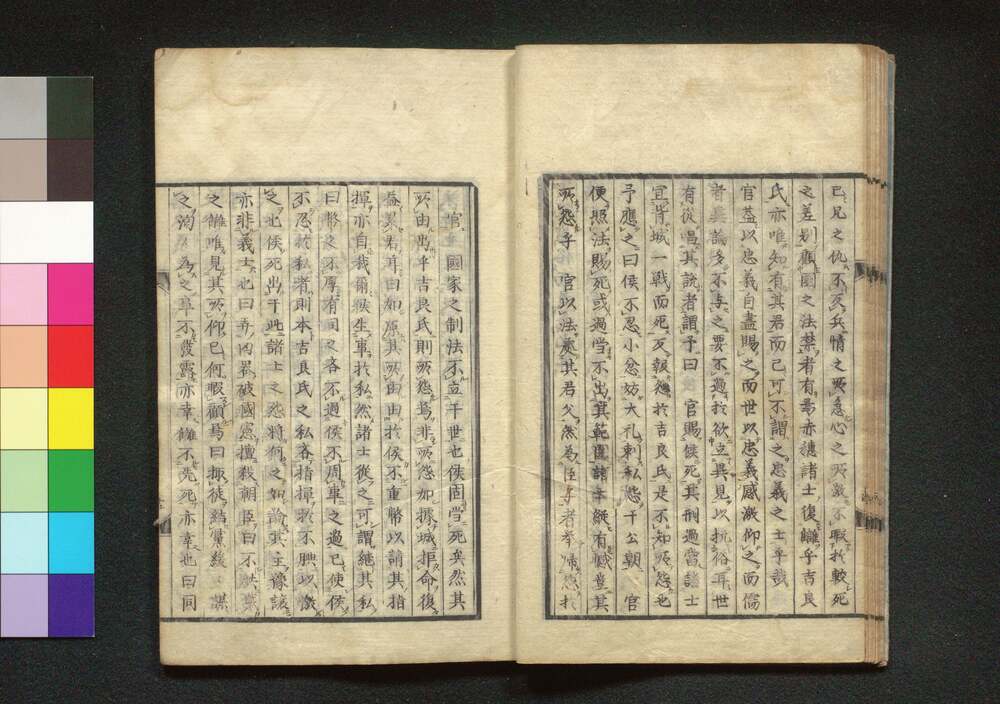 已兄之仇不反兵情之所急心之所激不暇於較死
之差別顧國之法禁者有焉赤穗諸士復讎乎吉良
氏亦唯知有其君而已可不謂之忠義之士乎哉
官蓋以忠義自盡賜之而世以忠義感激仰之而儒
者異論多不與之要不過於欲立異見以抗俗耳世
有從唱其說者謂予曰官賜侯死其刑過當諸士
宜背城一戰而死反報怨於吉良氏是不知所怨也
予應之曰侯不忍小忿妨大禮刺私怨于公朝官
便照法賜死或過當不出其範圍諸士縱有憾豈其
所怨乎官以法處其君父然為臣子者舉歸怨於
官國家之制法不立于世也侯固當死矣然其
所由出乎吉良氏則所怨焉非所怨如據城拒命復
益累君耳曰如原其所由由於侯不重幣以請其指
揮亦自裁爾猴生事於私然諸士從之可謂繼其私
曰幣之不厚有司之吝不過侯不周事之過已使侯
不忍於私者則本吉良氏之私吝指揮於不腆以激
之也侯死出于此諸士之怨將何之如論其主豫該
亦非義士也曰弄內罪破國憲擅殺朝臣曰不共戴
之讎唯見其所仰已何暇顧焉曰掫徒結黨幾謀
之漏乃為之草不發露亦幸讎不先死亦幸也曰同